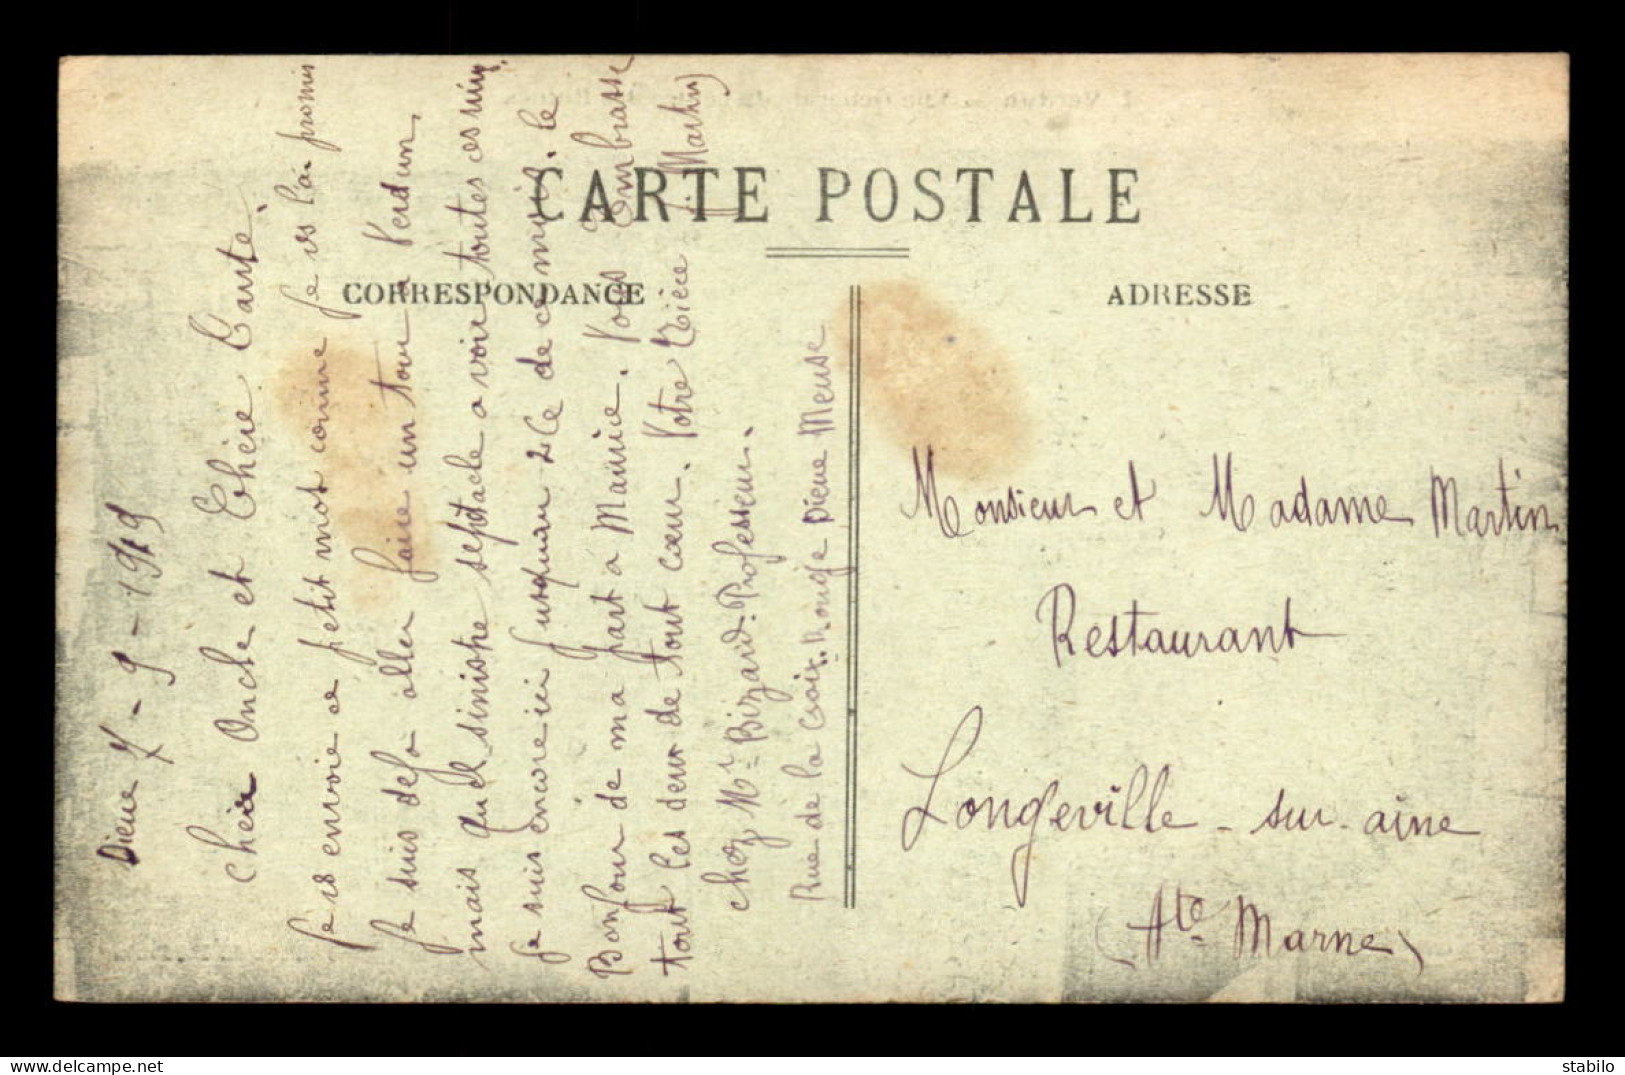 CARTE POSTALE
CORRESPONDANCE
ADRESSE
Dieue 7-9-1919
Cher Oncle et Chère Tante.
Je vs envoie ce petit mot comme je vs l'ai promis
Je suis deja aller faire un tour a Verdun,
mais quel sinistre septacle a voir toutes ces
je suis encore ici jusquau de ce mois. le
Bonjour de ma part a Maurice. Vous Embrasse
tout les deux de tout cœur. Votre Nièce Martin
chez Mr Bizard. Professeur.
Rue de la Croix. Rouge Dieue Meuse
Monsieur et Madame Martin
Restaurant
Longeville - sur - aine
(Hte Marne)
delcampe.net
stabilo